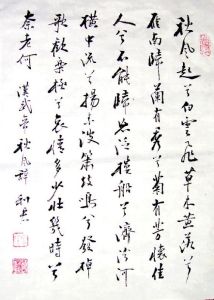 秋風起兮白雲飛草木黃落兮
雁南歸蘭有秀兮菊有芳懷佳
人兮不能泛樓船兮濟汾河
橫中流兮揚素波簫鼓鳴兮發棹
歌歡樂極兮哀情多少壯幾時兮
奈老何 漢武帝秋風辭